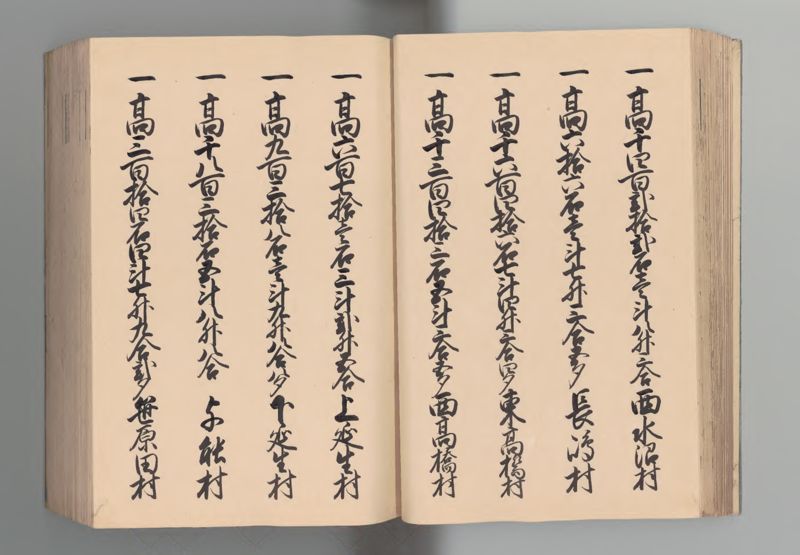 一高千四百弐拾弐石壱斗八升六合西水沼村
一高六拾六石壱斗七升三合五夕長嶋村
一高千六百四拾六石七斗四升六合四夕東高橋村
一高千三百四拾三石五斗六合五夕西高橋村
一高六百七拾壱石三斗弐升五合上延生村
一高九百三拾八石壱斗九升八合八夕下延生村
一高千八百三拾石五斗八升八合与能村
一高三百拾四石四斗七升九合弐夕笹原田村